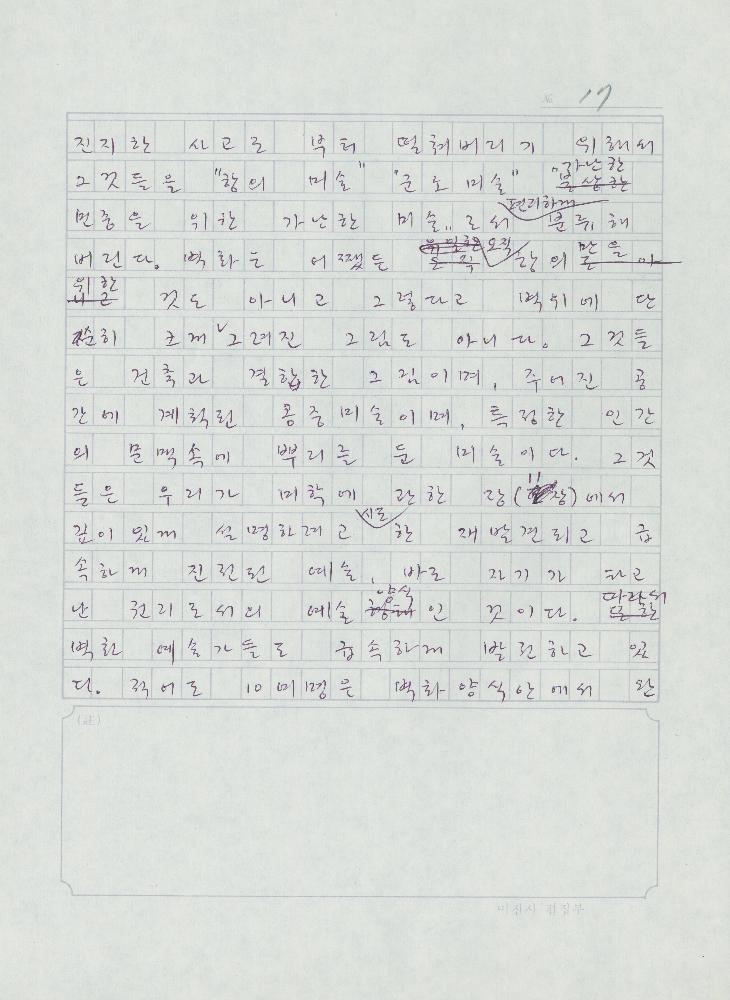 No 17
진지한 사고로 부터 떨쳐버리기 위해서
그것들을 "항의 미술" "군도미술" "가난한
민중을 위한 가난한 미술"로서 편리하게 분류해
버린다. 벽화는 어쨌든 오직 항의만을
위한 것도 아니고 그렇다고 벽위에 단
순히 크게 그려진 그림도 아니다. 그것들
은 건축과 결합한 그림이며, 주어진 공
간에 계획된 공중미술이며, 특정한 인간
의 문맥속에 뿌리를 둔 미술이다. 그것
들은 우리가 미학에 관한 장( 장)에서
깊이 있게 설명하려고 시도한 재발견되고 급
속하게 진전된 예술, 바로 자기가 타고
난 권리로서의 예술양식인 것이다. 따라서
벽화 예술가들도 급속하게 발전하고 있
다. 적어도 10여명은 벽화양식안에서 완
(註)
미진사 편집부